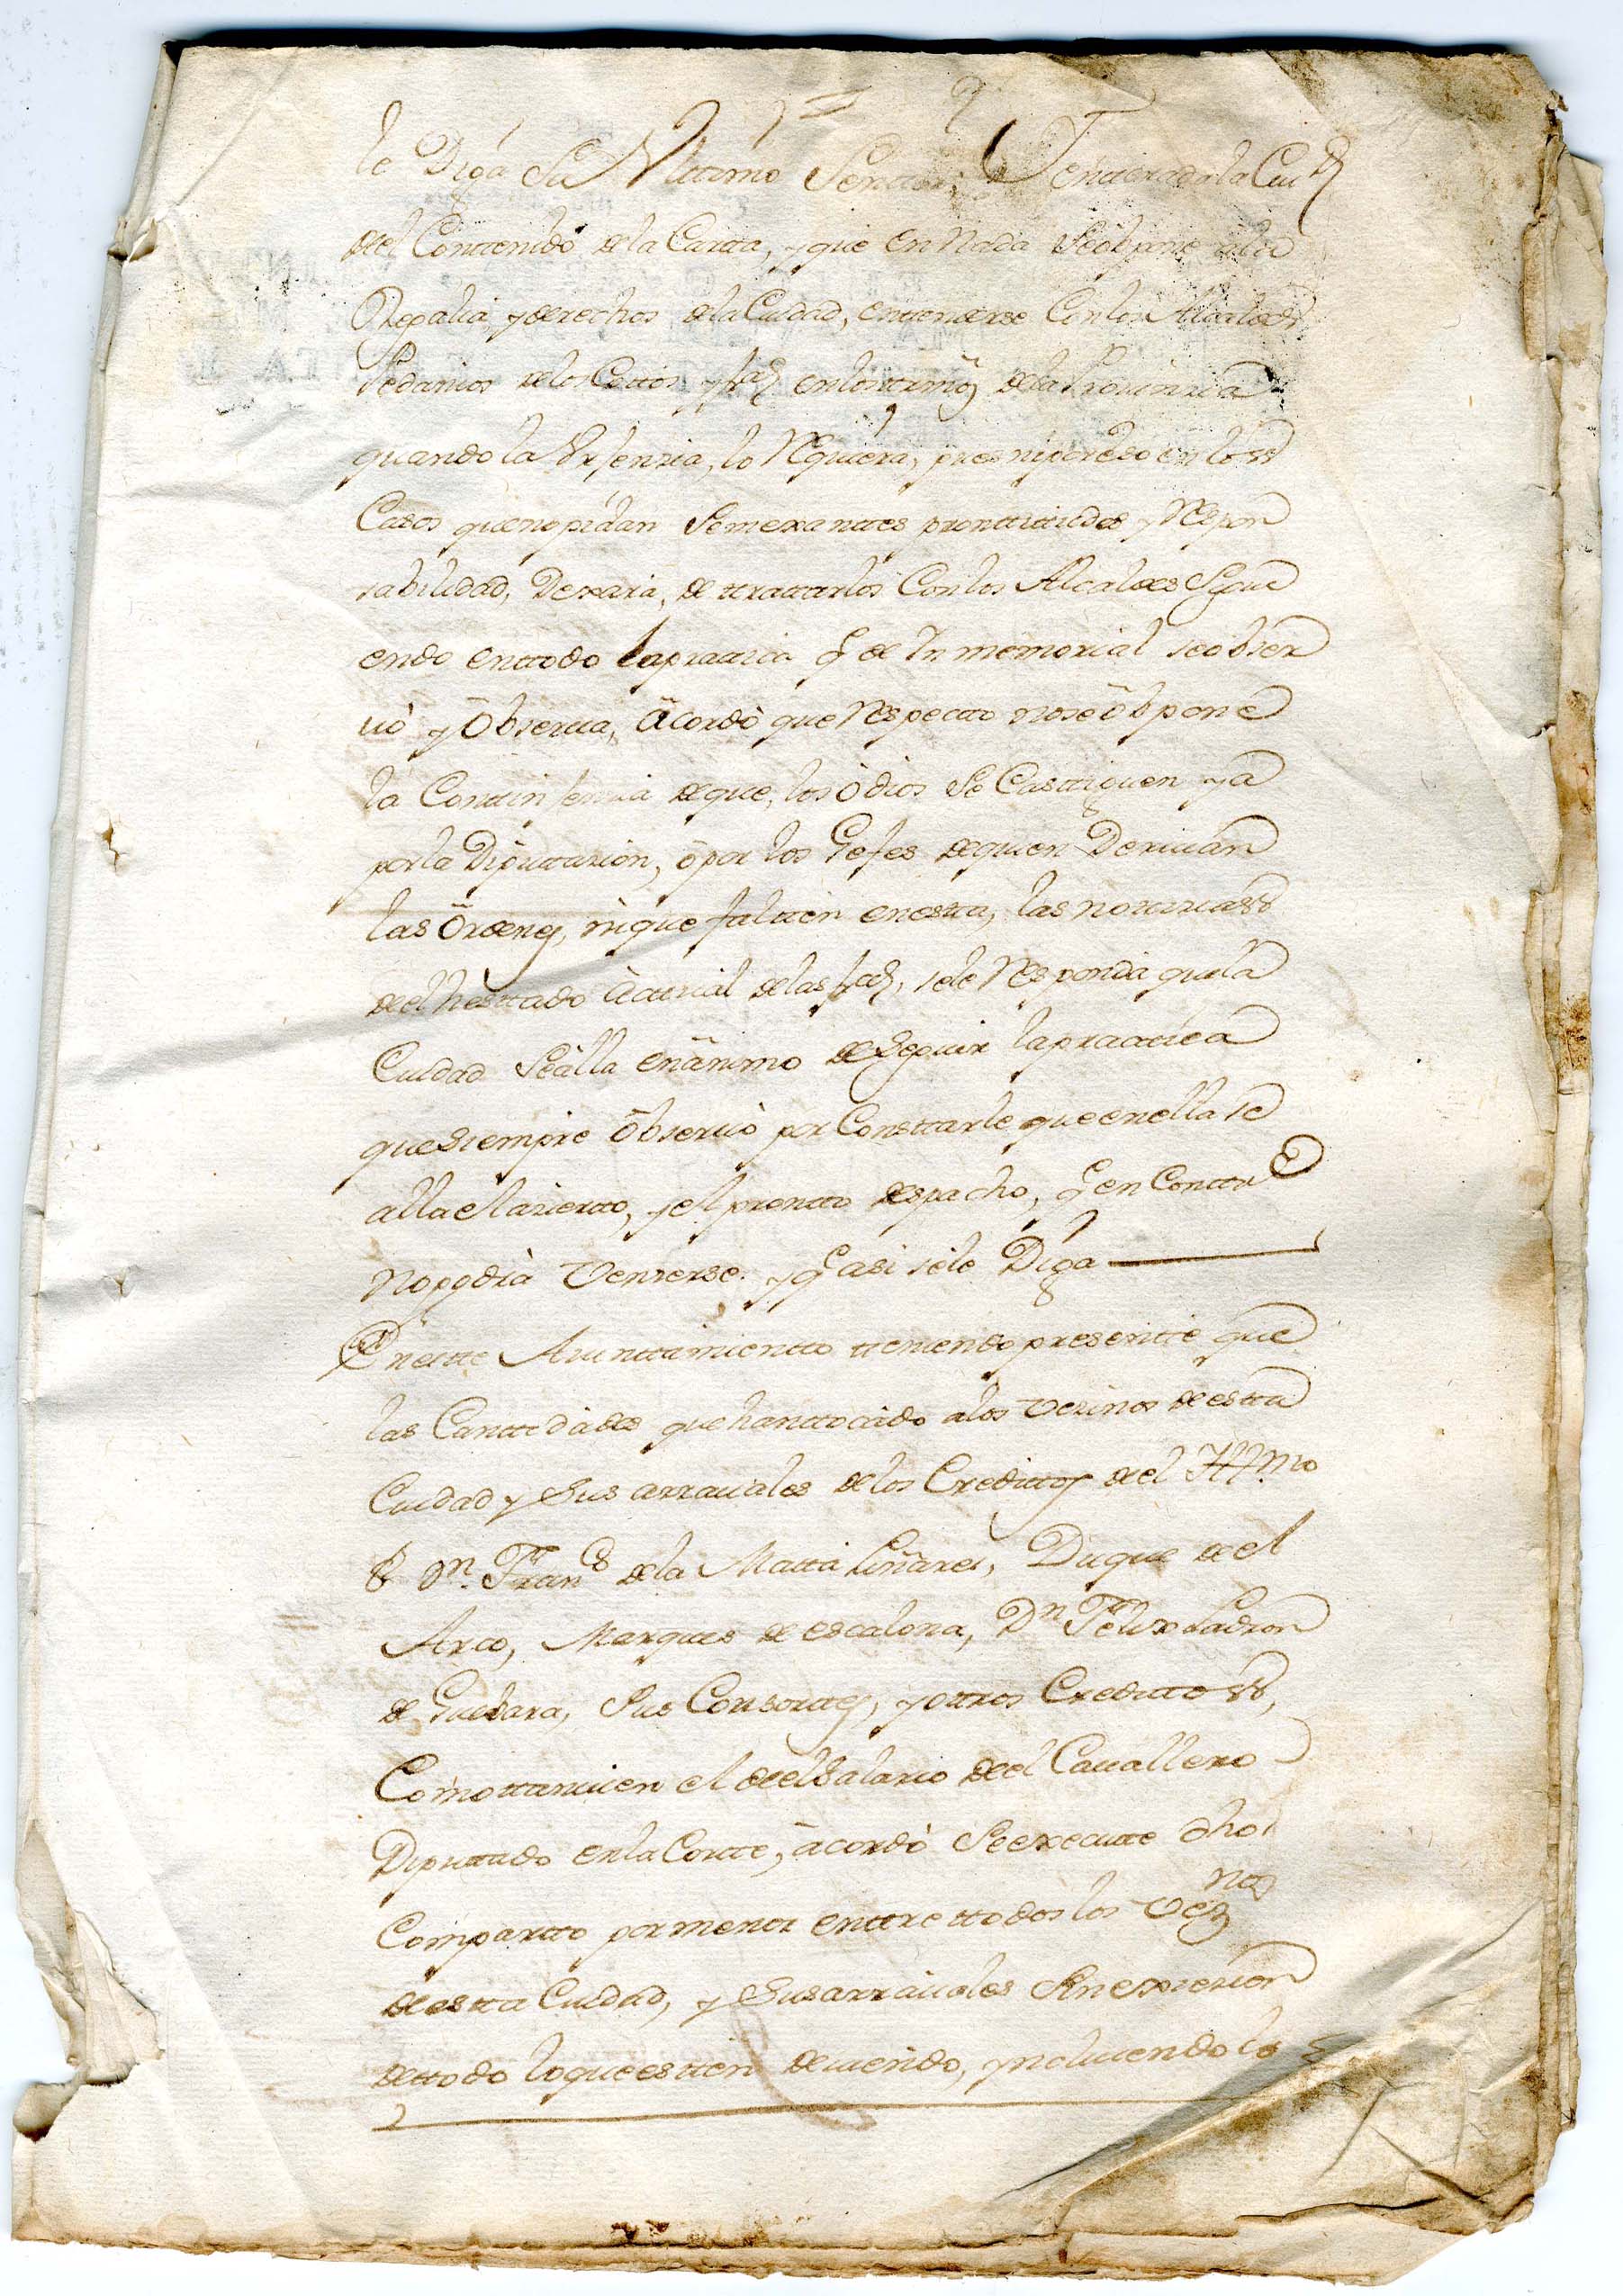 le Diga su Vltimo Senttir, Y entterada la Ciud
del Conttenido de la Cartta, y que en Nada Se obpone a la
Regalia, y derechos de la Ciudad, enttenderse Con los Alcaldes
Pedaneos de los Cottos y fras en los ttermos de la Provinzia
quando la Vrjenzia, lo Requiera, pues ni por eso en los
Casos que no pidan Semexanttes pronttitudes y Respon
sabilidad, Dexaria, de ttrattarlos Con los Alcaldes Sigui
endo en ttodo la practtica q de Inmemorial se obser
uò y Obserua, acordò que Respectto no se obpone
la Conttinjenzia de que, los Odios Se Casttiguen ya
por la Diputtazion, o por los Gefes de quien Deriuan
las Ordenes, ni que faltten en estta, las notizias
del hesttado Acttual de las fras, se le Responda que la
Ciudad Se alla en animo de Seguir la practtica
que Siempre obseruò por Consttarle que en ella se
alla el azierto, y el prontto despacho, q en Conttro
No podia Venzerse. y q asi se le Diga
En estte Aiunttamientto tteniendo presentte que
las Canttidades que han ttocado a los Vezinos de estta
Ciudad y Sus arrauales de los Creditos del Yllmo
S Dn. Franco de la Matta Liñares, Duque del
Arco, Marques de escalona, Dn Felix Ladron
de Guebara, Sus Consorttes, y ottros Creditos,
Como ttanuien el del Salario del Cauallero
Diputtado en la Cortte, acordò Se execute dho
Compartto por menor enttre ttodos los Vez
nos
de estta Ciudad, y Sus arrauales Sin expresion
de ttodo lo que estten deuiendo, yncluiendolo